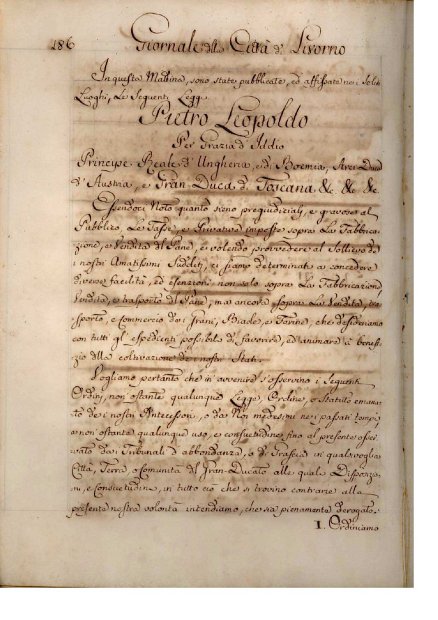 186 Giornale della Città di Livorno
In questa Mattina, sono state pubblicate, ed affissate nei soliti
Luoghi, le seguenti Leggi
Pietro Leopoldo
Per Grazia d'Iddio
Principe Reale d'Ungheria, e di Boemia, Arci Duca
d'Austria, e Gran Duca di Toscana &c &c &c
Essendoci Noto quanto sieno pregiudiziali, e gravose al
Pubblico, le Tasse, e Privative imposte sopra la Fabbrica-
zione, e Vendita del Pane, e volendo provvedere al sollievo de
i nostri Amatissimi Sudditi, ci siamo determinati a concedere
diverse facilità, ed esenzioni non solo sopra la Fabbricazione
Vendita, e trasporto del Pane, ma ancora sopra la Vendita, tra-
sporto, e Commercio dei Grani, Biade, e Farine, che desideriamo
con tutti gl'espedienti possibili di favorire, ed animare a benefi-
zio della coltivazione de i nostri Stati.
Vogliamo pertanto che in avvenire s'osservino i seguenti
Ordini, non ostante qualunque Legge, Ordine, o Statuto emana-
to dei nostri Antecessori, o da Noi medesimi nei passati tempi,
e non ostante qualunque uso, e consuetudine fino al presente osser-
vato dai Tribunali d'abbondanza, o di Grascia in qualsivoglia
Città, Terra, o Comunità del Gran-Ducato alle quali Disposizio-
ni, e Consuetudini, in tutto ciò che si trovino contrarie alla
presente nostra volontà intendiamo, che sia pienamente derogato.
I. Ordiniamo